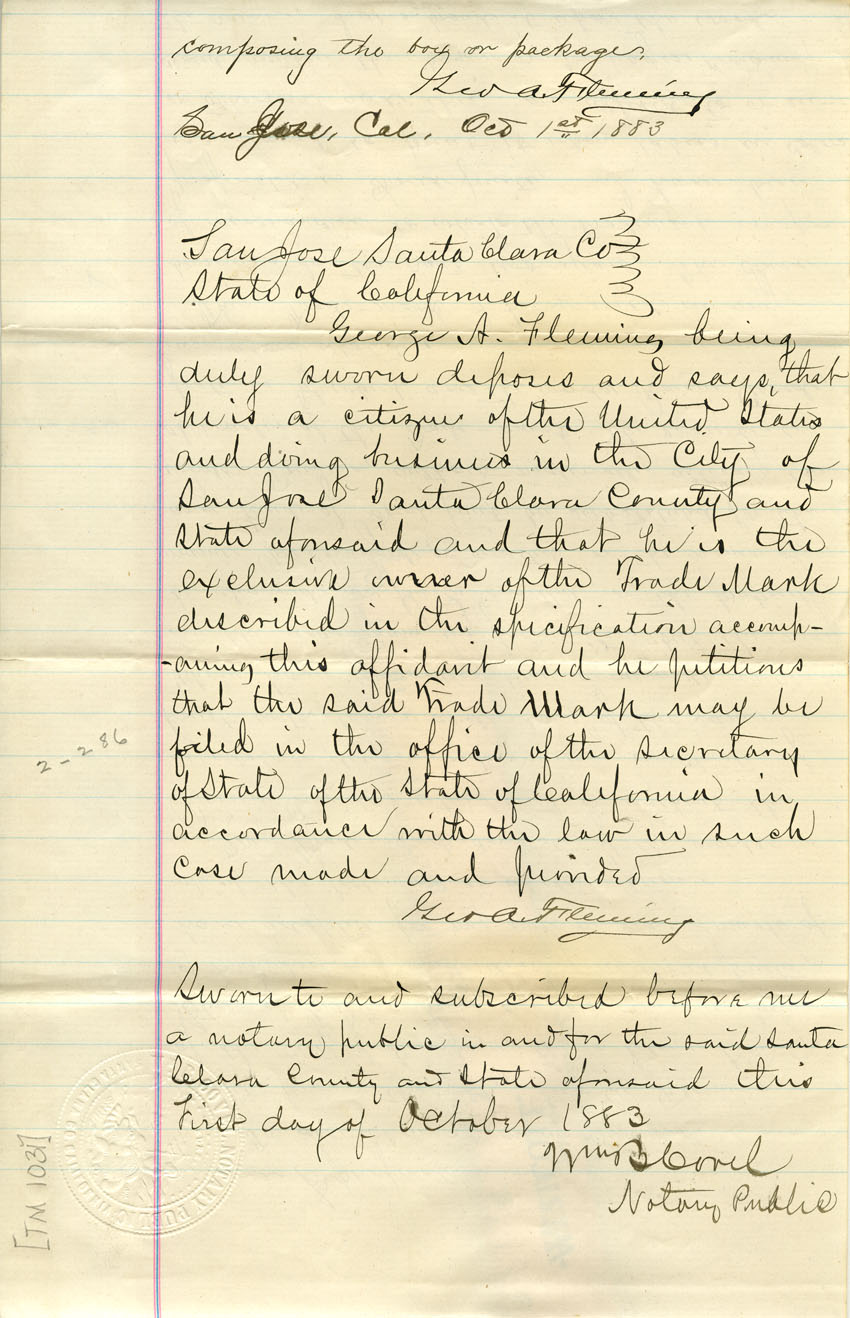 composing the box or package.
Geo A. Fleming
San Jose, Cal. Oct 1st 1883
San Jose Santa Clara Co
State of California
George A. Fleming being
duly sworn deposes and says, that
he is a citizen of the United States
and doing business in the City of
San Jose Santa Clara County and
State aforesaid and that he is the
exclusive owner of the Trade Mark
described in the specification accomp-
-aning this affidavit and he petitions
that the said Trade Mark may be
filed in the office of the secretary
of State of the State of California in
accordance with the law in such
case made and provided
Geo A. Fleming
2-286
Sworn to and subscribed before me
a notary public in and for the said Santa
Clara County and State aforesaid this
First day of October 1883
Wm B Covel
Notary Public
NOTARY PUBLIC
[TM 1031]